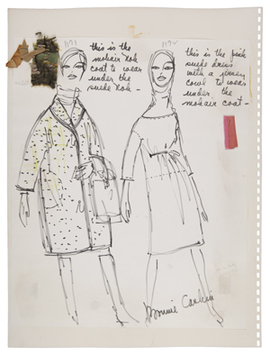 this is the
mohair
coat to wear
under the
suede
this is the pink
suede dress
with a jersey
cowl to wear
under the
mohair coat -
Bonnie Cashin